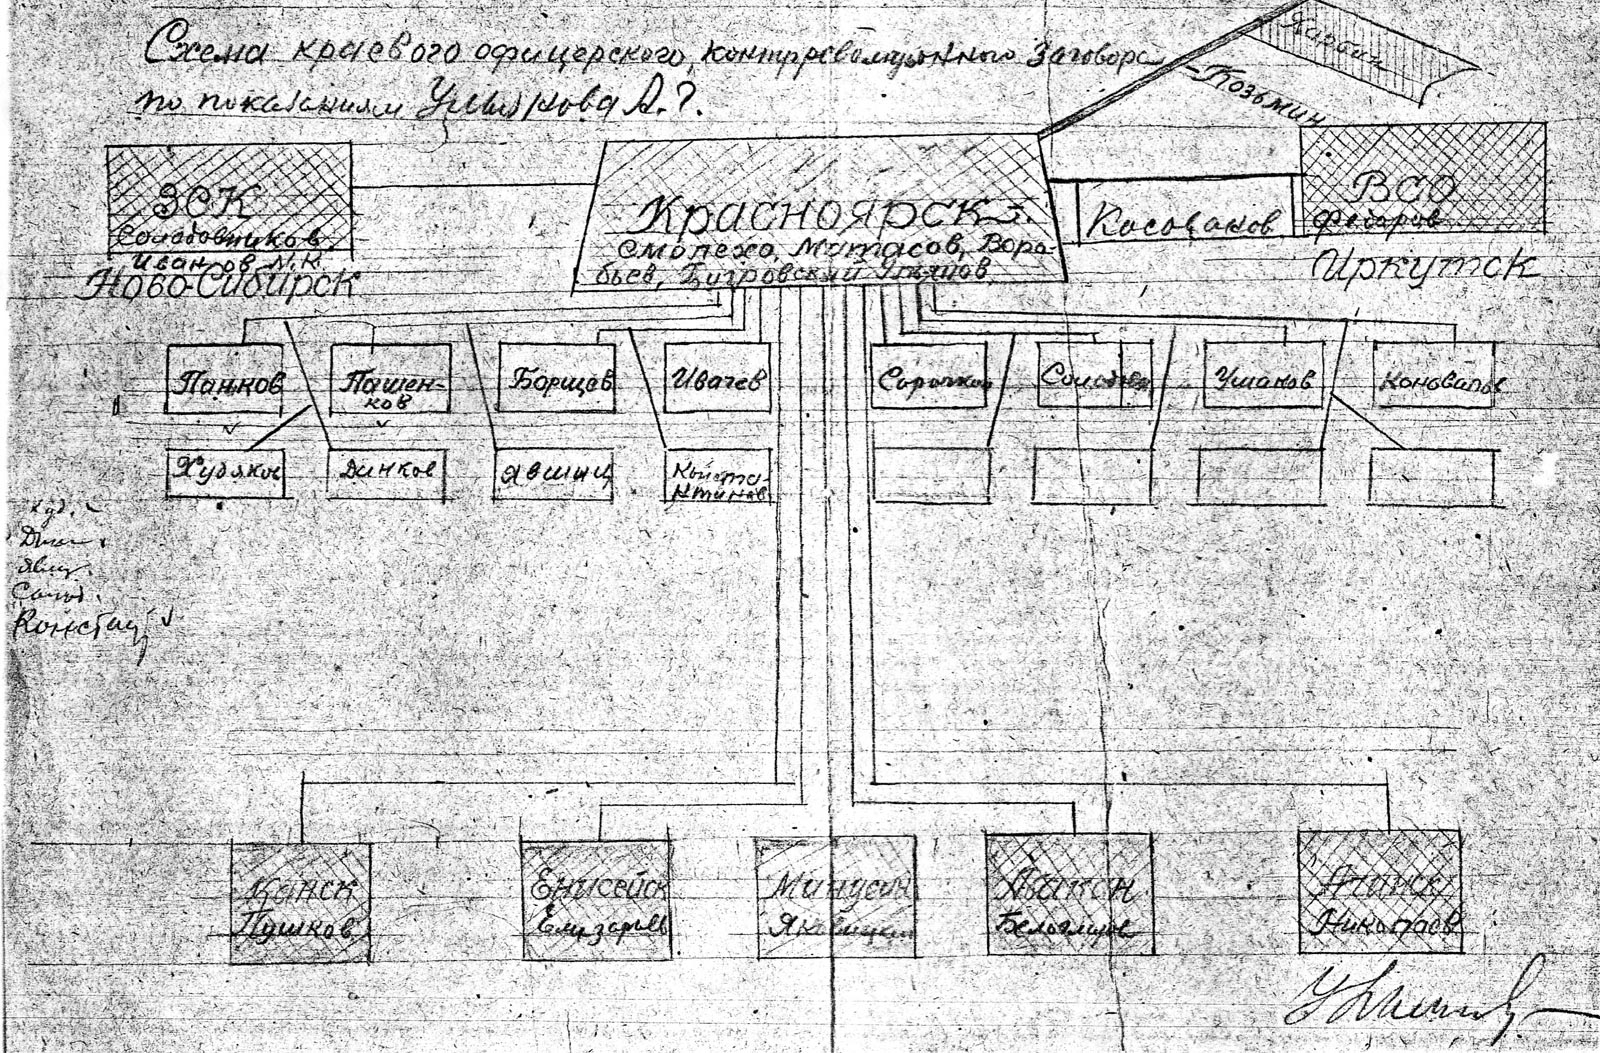 Схема краевого офицерского, контрреволюционного заговора
по показаниям А. ?.
Харбин
-Козьмин
ЗСК
Солодовников,
Иванов Н.Н.
Ново-Сибирск
Красноярск
Смолехо, Матасов, Воро-
бьев, Бигровский Ульянов
Косованов
ВСО
Федоров
Иркутск
Панков
Пашен-
ков
Борщев
Ивачев
Ушаков
Коновалов
Худяков
Динков
Явшиц
Конста-
нтинов
Худ.
Дин
Явш.
Солод.
Констан
Канск
Пушков
Енисейск
Елизарьев
Минусин
Абакан
Белоглазов
Ачинск
Николаев